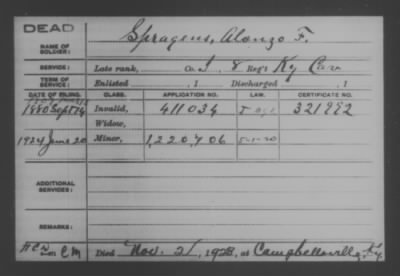 DEAD
NAME OF SOLDIER: Spragens, Alonzo F.
SERVICE: Late rank, Co. I, 8 Reg't Ky Cav
TERM OF SERVICE: Enlisted , 1 Discharged , 1
DATE OF FILING. CLASS. APPLICATION NO. LAW. CERTIFICATE NO.
1880 Sept 74 Invalid, 411034 321992
Widow,
1924 June 20 Minor, 1,220,706
ADDITIONAL SERVICES:
REMARKS:
Died Nov. 21, 1928, at Campbellsville, Ky.